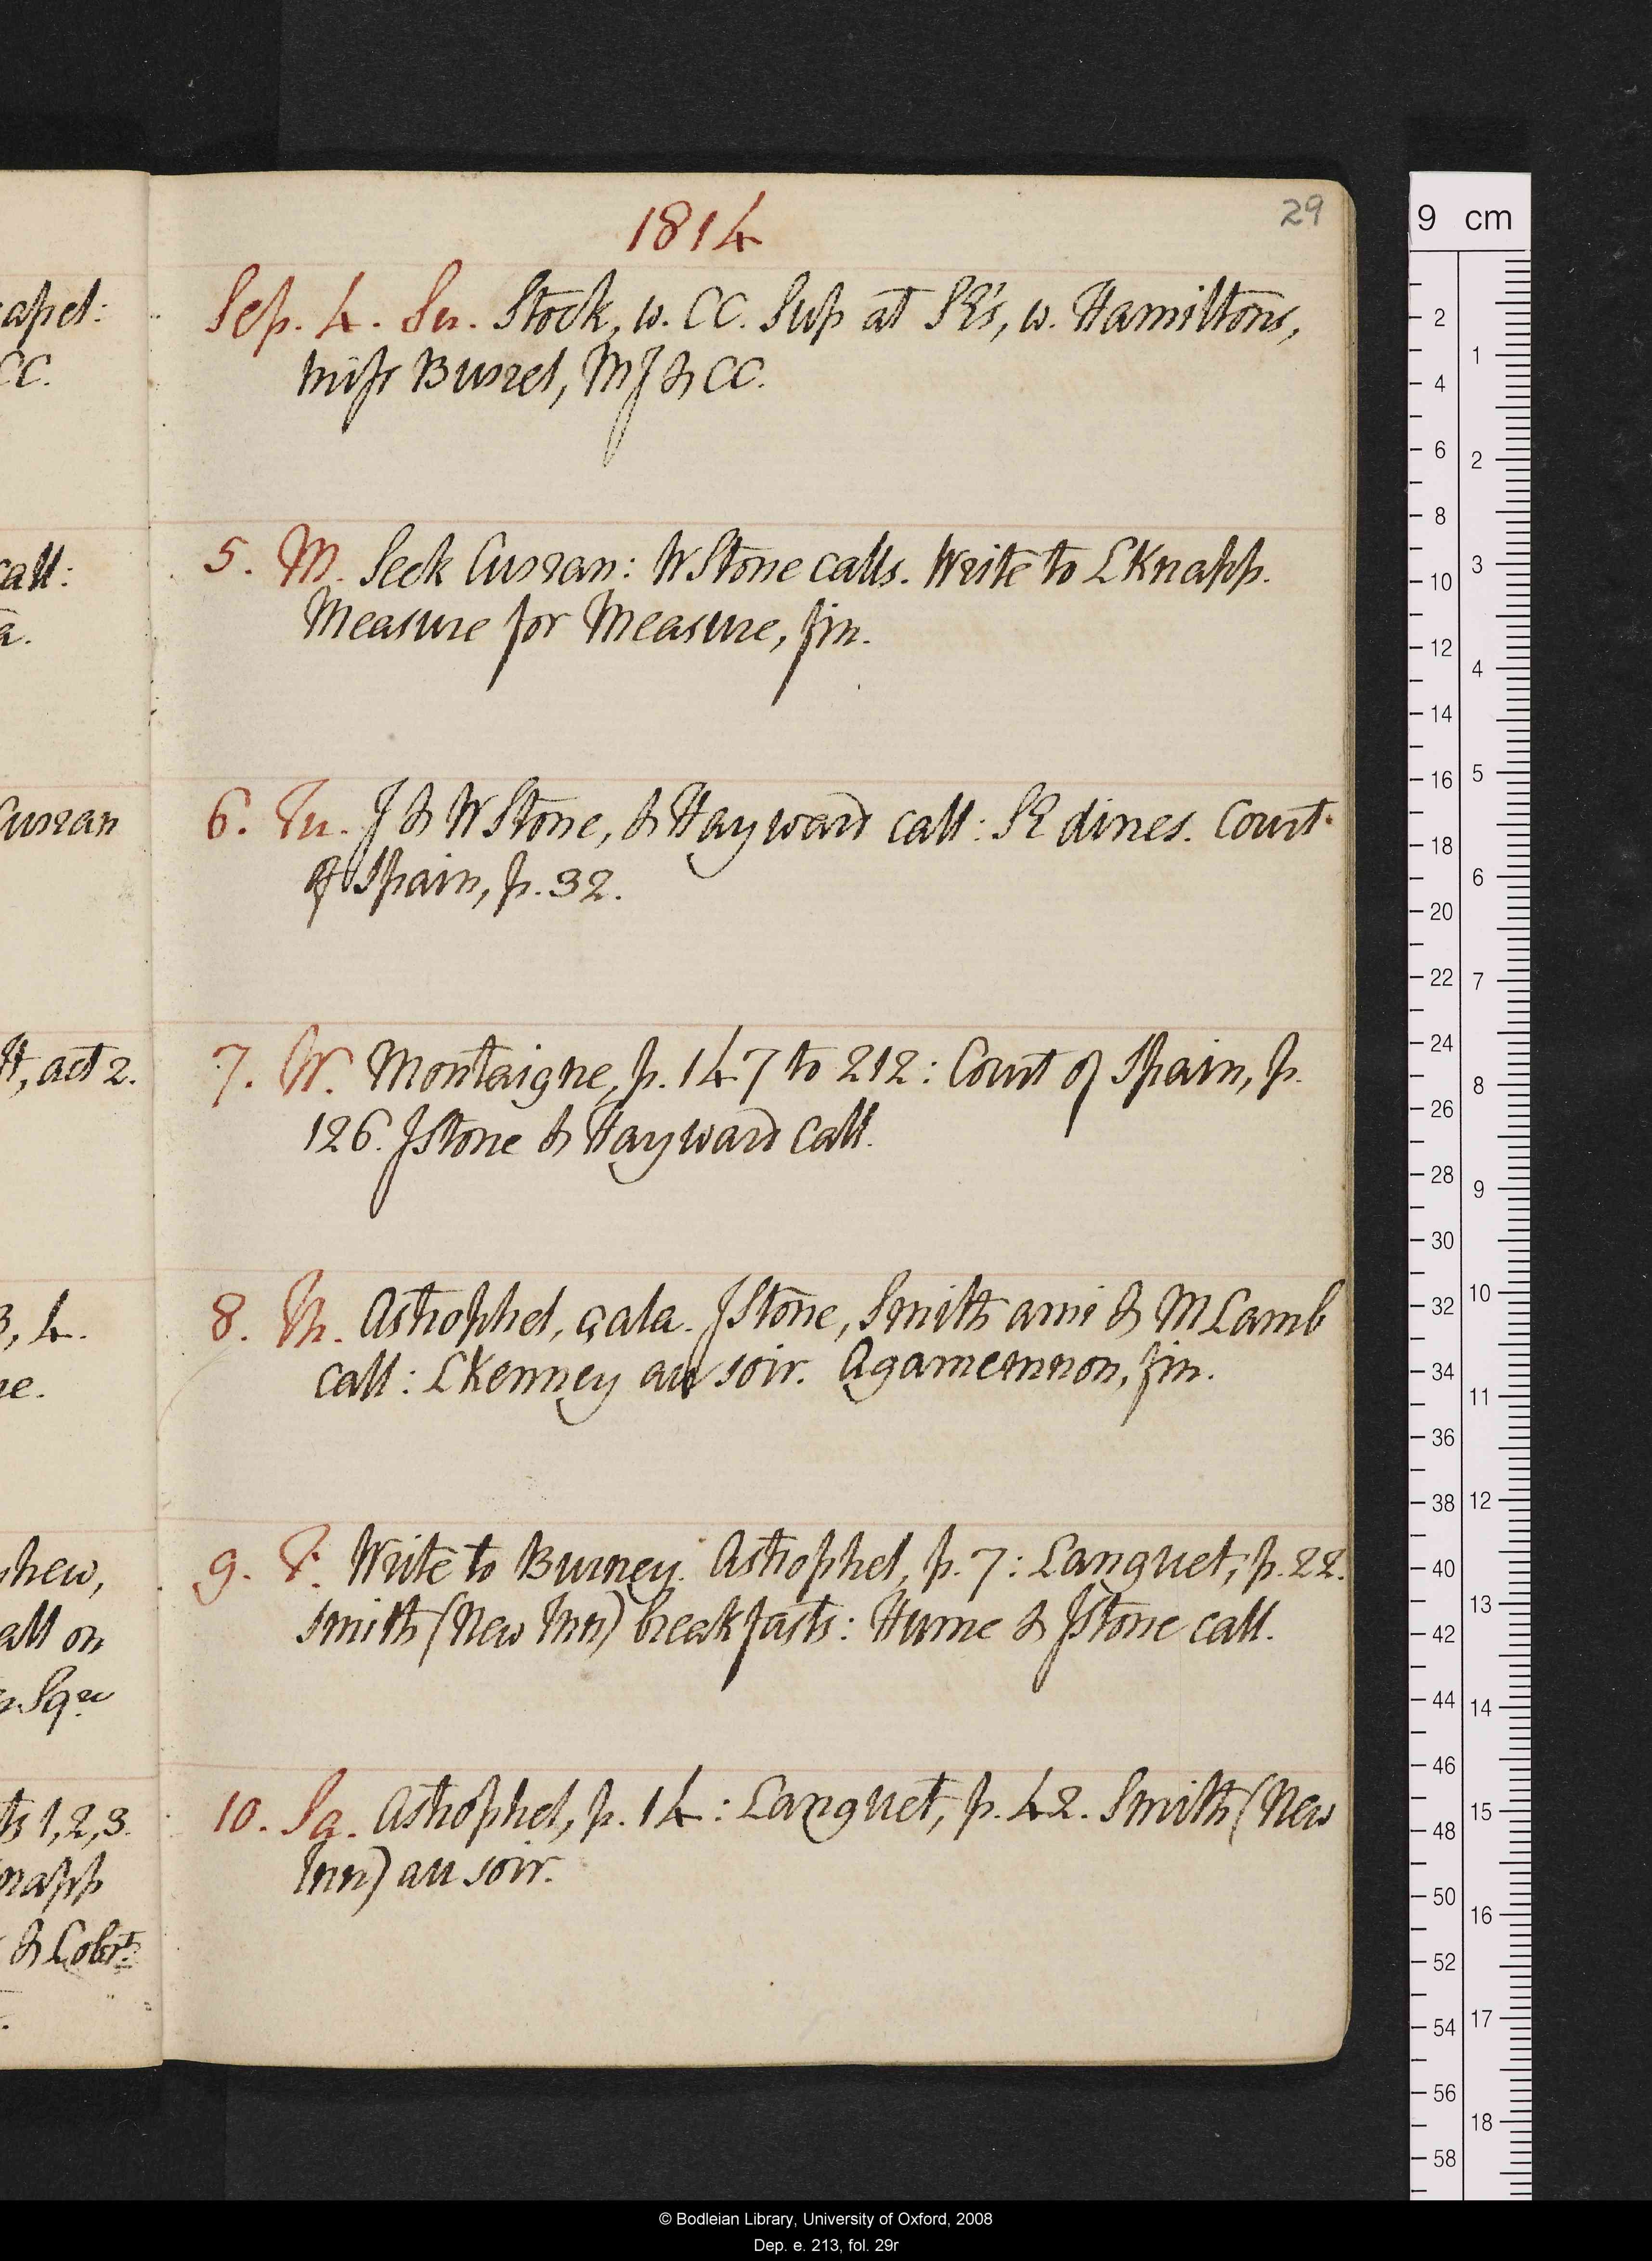 1814
29
Sep. 4. Su. Stock, w. CC. Sup at SR's, w. Hamiltons,
miss Burrel, MJ & CC.
5. M. Seek Curran: W Stone calls. Write to L Knapp.
Measure for Measure, fin.
6. Tu. J & W Stone, & Hayward call: SR dines. Court
of Spain, p. 32.
7. W. Montaigne, p. 147 to 212: Court of Spain, p.
126. J Stone & Hayward call.
8. Th. Astrophel, çala. J Stone, Smith ami & M Lamb
call: L Kenney au soir. Agamemnon, fin.
9. F. Write to Burney. Astrophel, p. 7: Languet, p. 22.
Smith (New Inn) breakfasts: Hume & J Stone call.
10. Sa. Astrophel, p. 14: Languet, p. 42. Smith (New
Inn) au soir.
apel:
CC.
call:
a.
Curran
act 2.
3, 4.
ne.
hew,
all on
Sqre
ts 1, 2, 3.
napp
&
9 cm
2
4
6
8
10
12
14
16
18
20
22
24
26
28
30
32
34
36
38
40
42
44
46
48
50
52
54
56
58
1
2
3
4
5
6
7
8
9
10
11
12
13
14
15
16
17
18
© Bodleian Library, University of Oxford, 2008
Dep. e. 213, fol. 29r